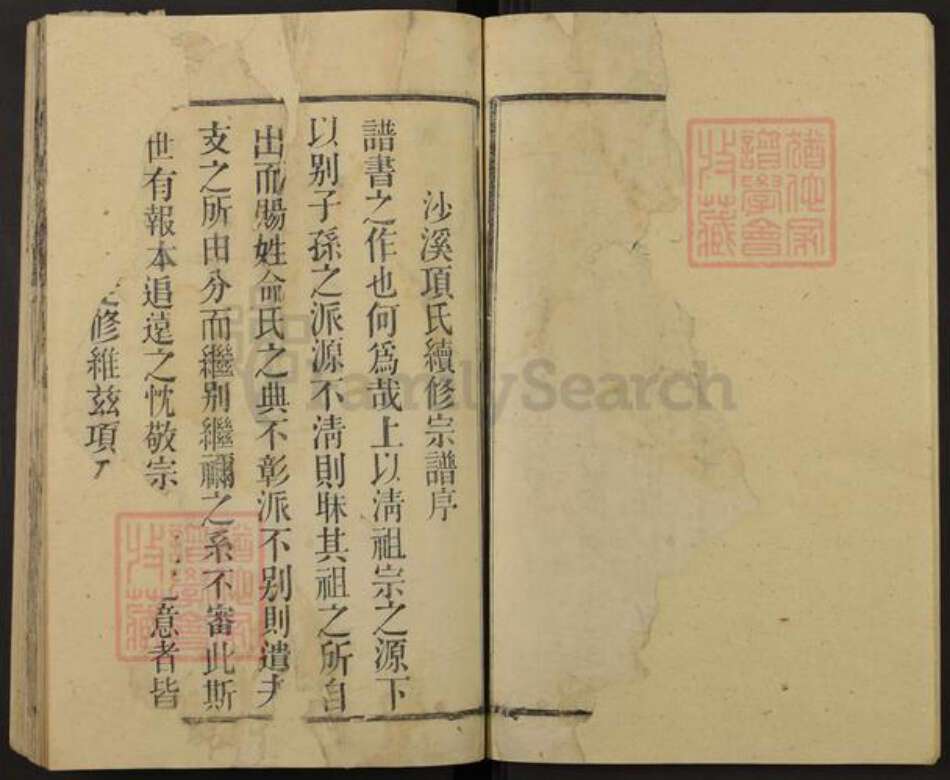 沙溪項氏續修宗譜序
譜書之作也何爲哉上以清祖宗之源下
以别子孫之派源不清則昧其祖之所自
出而賜姓命氏之典不彰派不别則遺夫
支之所由分而繼别繼禰之系不審此斯
世有報本追遠之忱敬宗
意者皆
修維兹項
FamilySearch